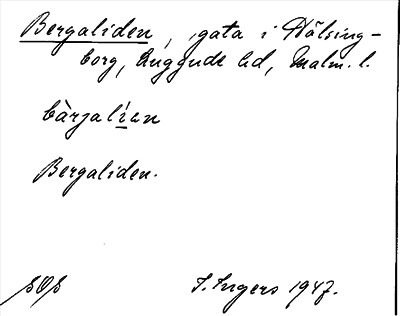 Bergaliden, gata i Hälsing-
borg, Luggude hd, Malm. l.
bàrjalíen
Bergaliden.
SOS I. Ingers 1947.